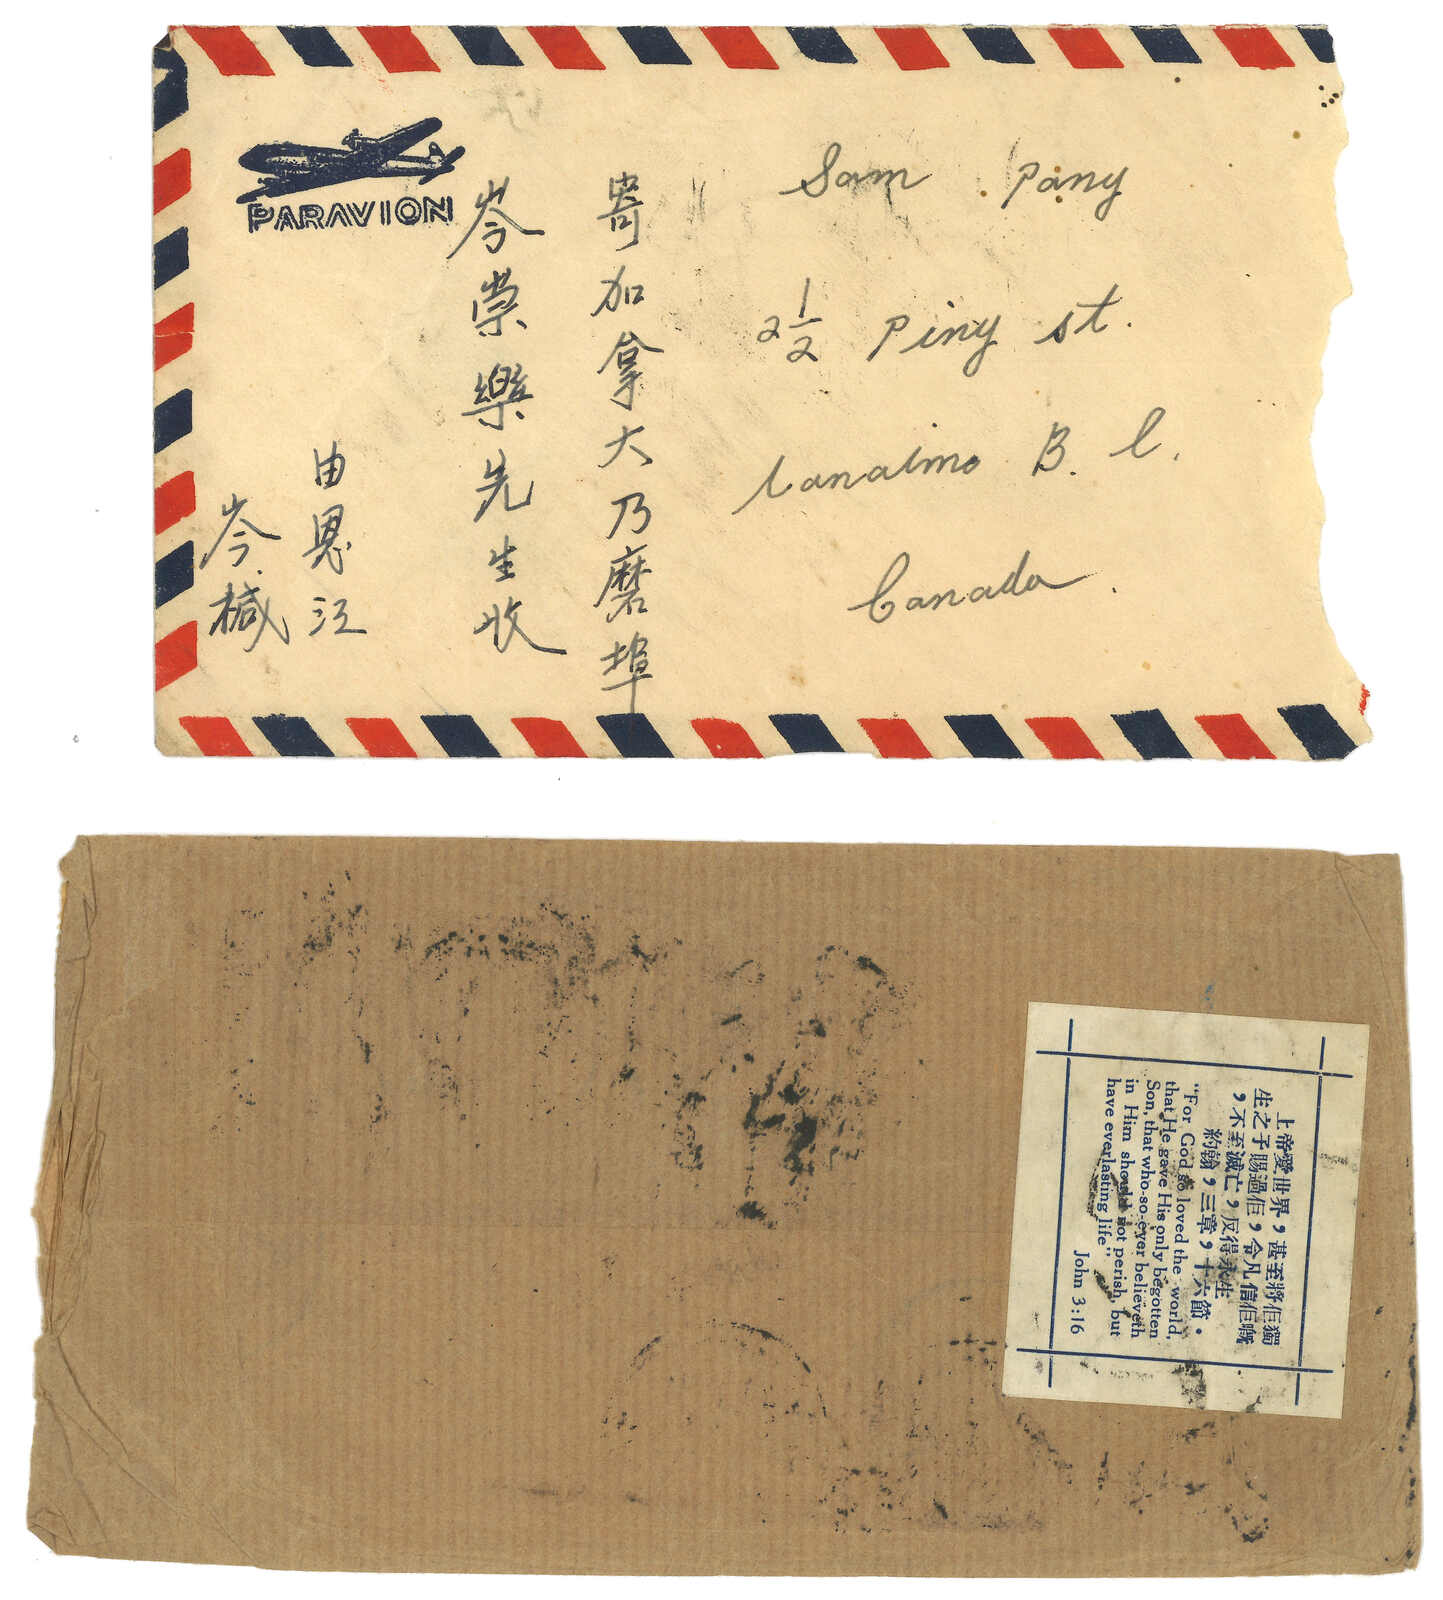 PARAVION
Sam Pany
2 1/2 Piny st.
Nanaimo B. C.
Canada.
寄加拿大乃磨埠
岑崇樂先生收
由恩江
岑椷
上帝愛世界，甚至將佢獨
生之子賜過佢，令凡信佢嘅
，不至滅亡，反得永生
約翰，三章，十六節。
"For God so loved the world,
that He gave His only begotten
Son, that who-so-ever believeth
in Him should not perish, but
have everlasting life"
John 3:16